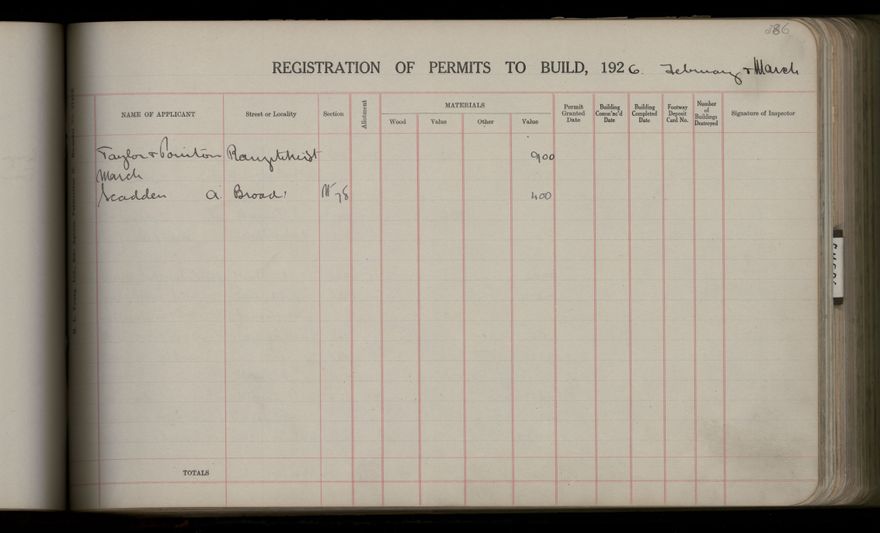 REGISTRATION OF PERMITS TO BUILD, 1926. February & March
NAME OF APPLICANT Street or Locality Section Allotment MATERIALS Permit Granted Date Building Comm'nc'd Date Building Completed Date Footway Deposit Card No. Number of Buildings Destroyed Signature of Inspector
Wood Value Other Value
Taylor & 900
March
Scadden A. Broad 400
TOTALS